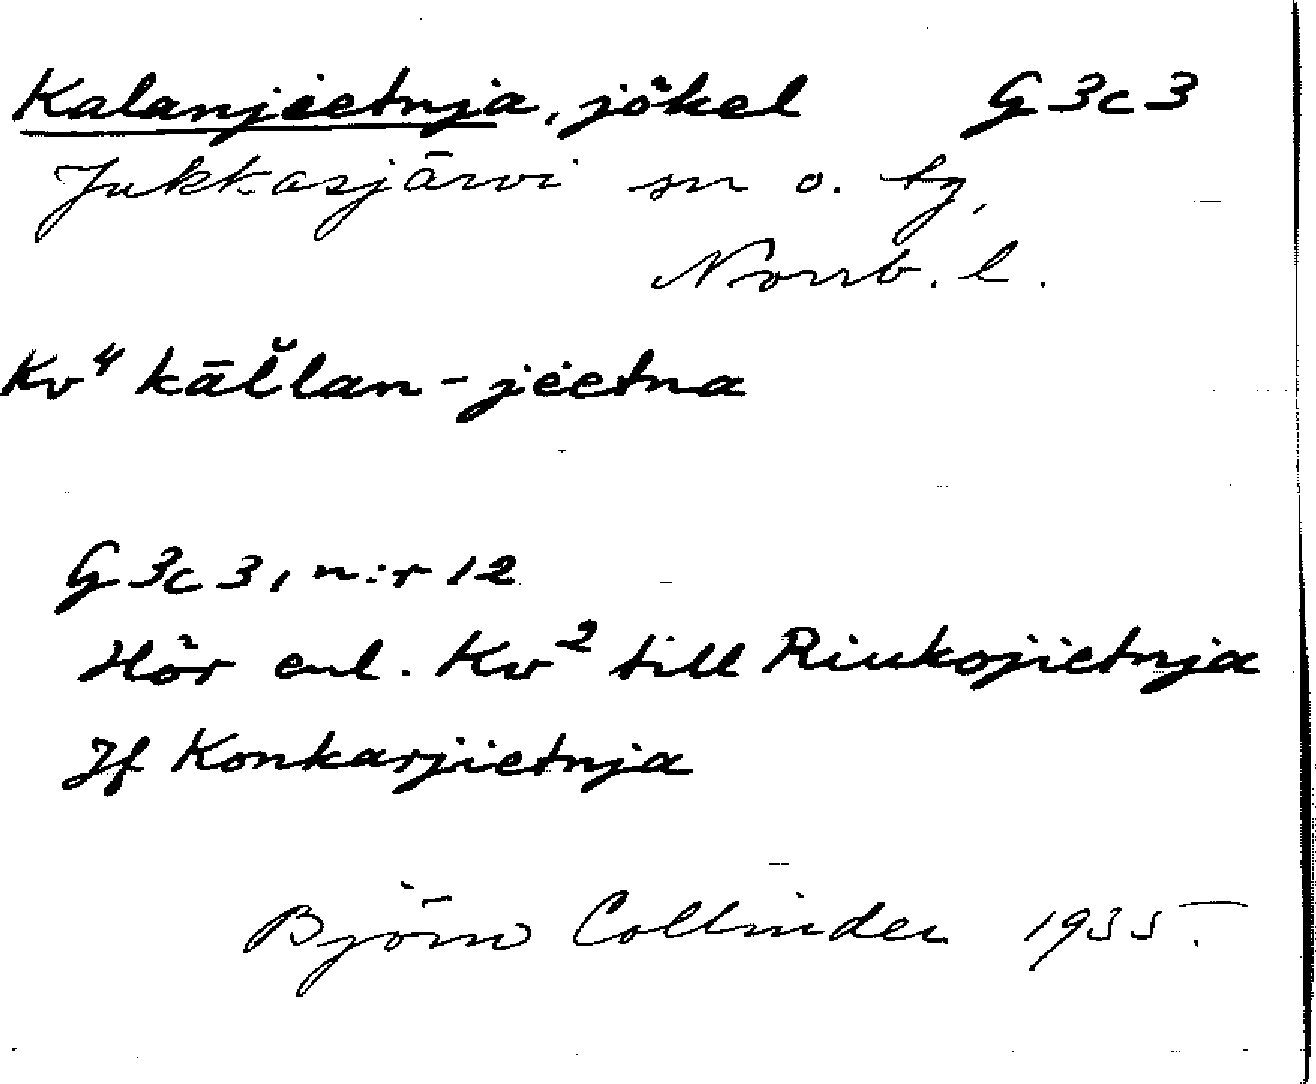 Kalanjietnja, jökel G 3c3
Jukkasjärvi sn o. tg,
Norrb. l.
Kv⁴ kāl̆lan-jietna
G 3c3, n:r 12
Hör enl. Kv² till Riukojietnja
Jf Konkarjietnja
Björn Collinder 1935.